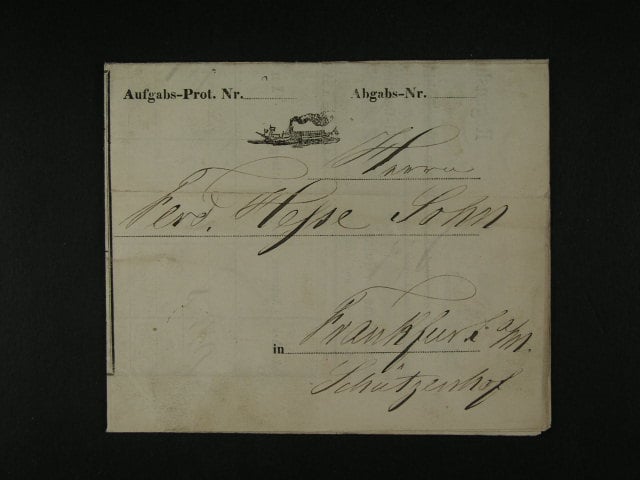 Aufgabs-Prot. Nr. Abgabs-Nr.
Herrn
Ferd. Hesse Sohn
in Frankfurt a/M.
Schützenhof